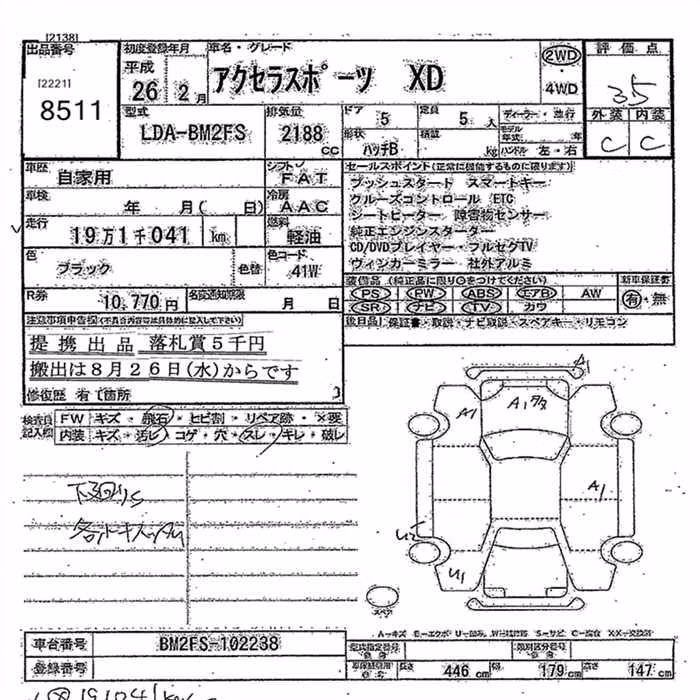 [2138]
出品番号
[2221]
8511
初度登録年月
平成
26 2月
車名・グレード
アクセラスポーツ XD
2WD
・
4WD
評価点
35
外装 内装
C C
型式
LDA-BM2FS
排気量
2188 cc
ドア 5
定員 5人
形状 ハッチB
積載 kg
ディーラー・並行
モデル年式 年
ハンドル 左・右
車歴
自家用
シフト
FAT
車検
年 月( 日)
冷房
AAC
走行
19万1千041 km
燃料
軽油
色
ブラック
色替
色コード
41W
R券
10,770円
名変通知期限
月 日
セールスポイント(正常に機能するものに限ります)
プッシュスタート スマートキー
クルーズコントロール ETC
シートヒーター 障害物センサー
純正エンジンスターター
CD/DVDプレイヤー・フルセグTV
ウィンカーミラー 社外アルミ
装備品(純正品に限り○をつけてください)
PS PW ABS エアB AW
SR ナビ TV カワ
新車保証書
有・無
後日品 保証書・取説・ナビ取説・スペアキー・リモコン
注意事項申告欄(不具合内容は具体的に記入して下さい)
提携出品 落札賞5千円
搬出は8月26日(水)からです
修復歴 有 箇所
検査員記入欄
FW キズ・飛石・ヒビ割・リペア跡・X要
内装 キズ・汚レ・コゲ・穴・スレ・キレ・破レ
下回りS
A1
A1
A1
A1
U1
スペア
A-キズ E-エクボ U-凹み W-
車台番号
BM2FS-102238
登録番号
型式指定番号
類別区分番号
長さ 446 cm
幅 179 cm
高さ 147 cm
191041km